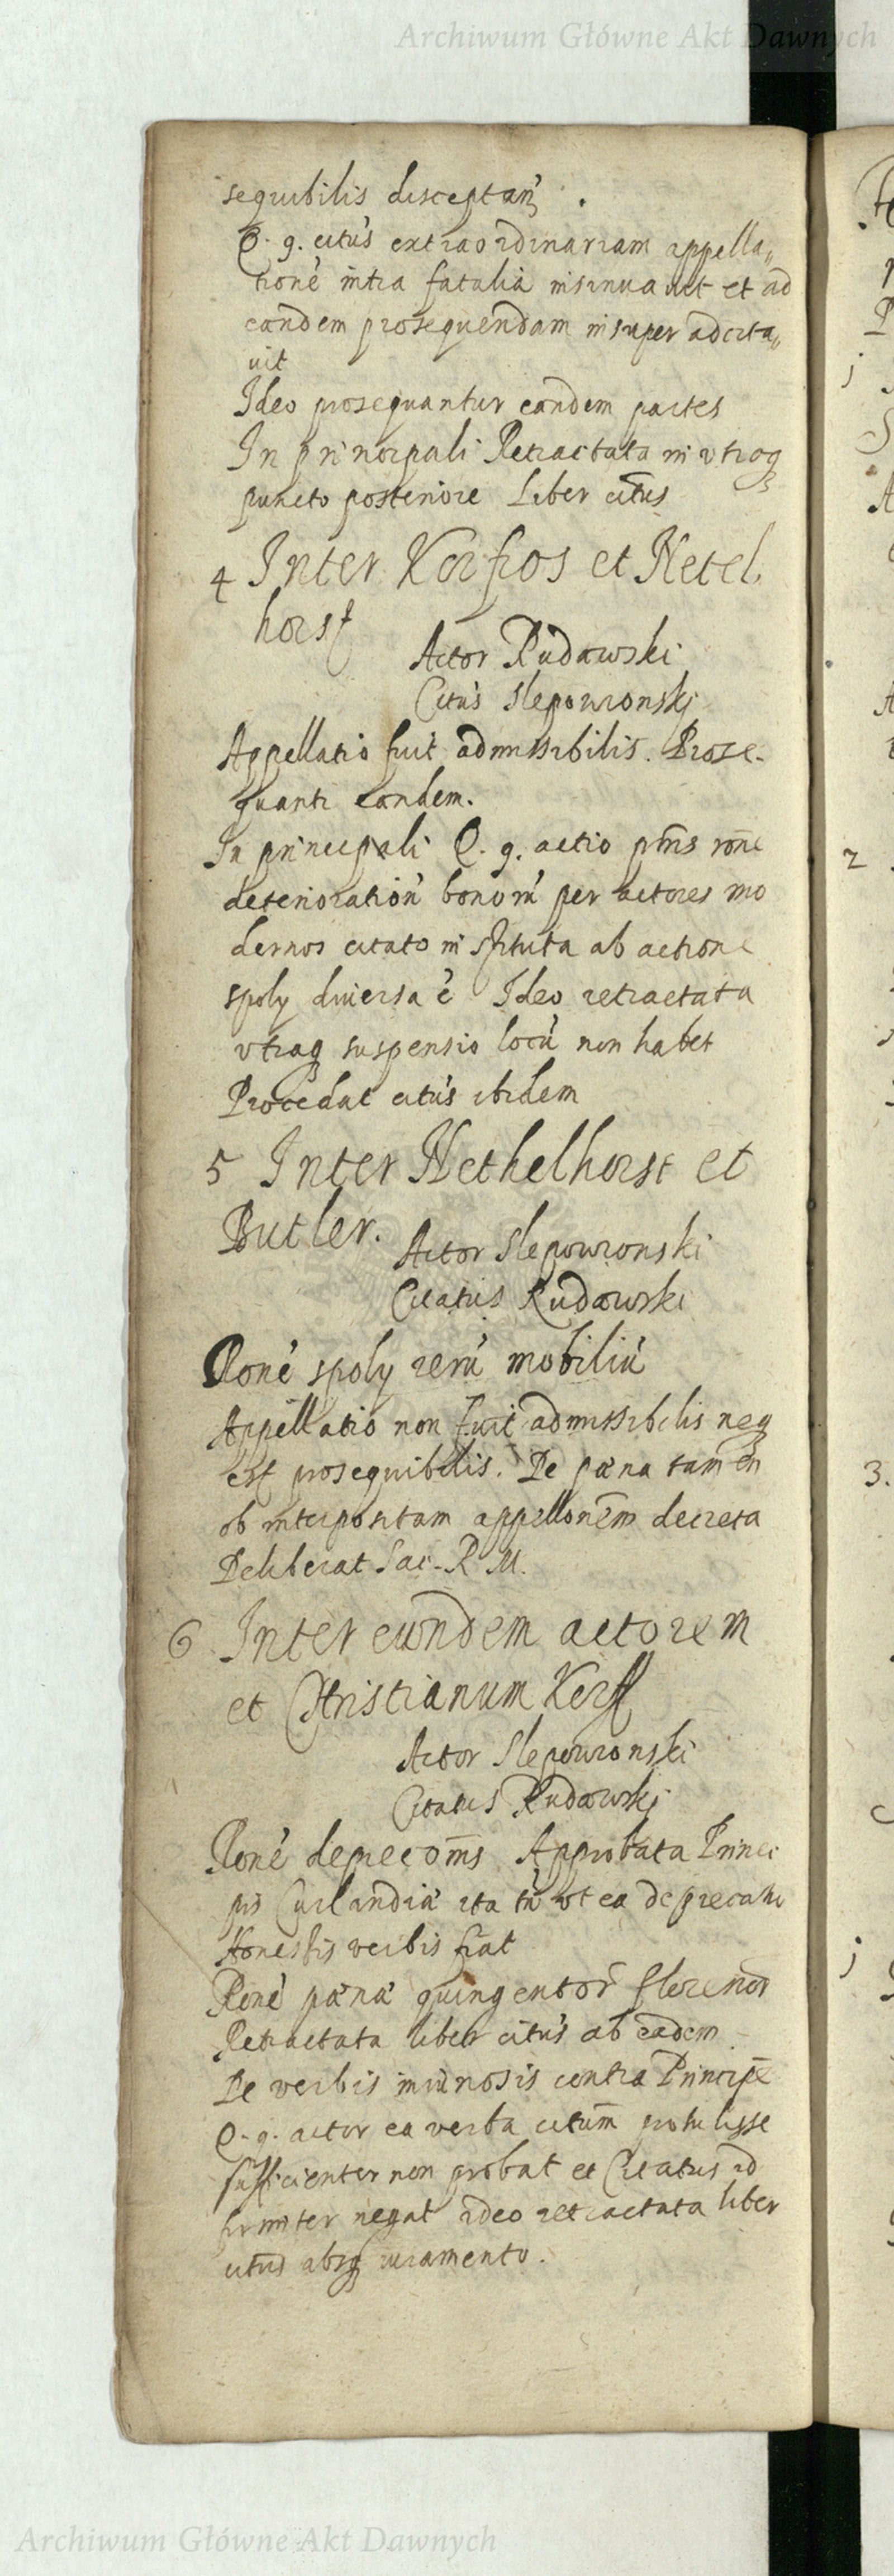 Archiwum Główne Akt Dawnych
sequibilis disceptań
Q. g. citus extraordinariam appella„
tione intra fatalia insinuavit et ad
eandem prosequendam insuper adcita„
uit
Ideo prosequantur eandem partes
In principali Retractata in vtroq
puncto posteriore Liber citus
4 Inter Korfios et Netel
horst
Actor Rudawski
Citus Slepowronski
Appellatio fuit admissibilis. Prose-
quantr eandem.
In principali Q. g. actio pns rone
deterioration bonorū per actores mo
dernos citato instituta ab actione
spoly diuersa ē Ideo retractata
vtraq suspensio locū non habet
Procedat citus ibidem
5 Inter Nethelhorst et
Butler.
Actor Slepowronski
Citatus Rudawski
Rone spoly rerū mobiliū
Appellatio non fuit admissibilis neq
est prosequibilis. De pæna tamen
ob interpositam appellonem decreta
Deliberat Sac. R M.
6 Inter eundem actorem
et Christianum Kerff
Actor Slepowronski
Citatus Rudawski
Rone deprecoms Approbata Princi
pis Curlandiæ ita tn vt ea deprecatio
Honestis verbis fiat
Rone pænæ quingentor florenor
Retractata liber citus ab eadem
De verbis iniuriosis contra Principe
Q. g. actor ea verba citum protulisse
sufficienter non probat et Citatus id
firmiter negat ideo retractata liber
citus absq iuramento.
Archiwum Główne Akt Dawnych